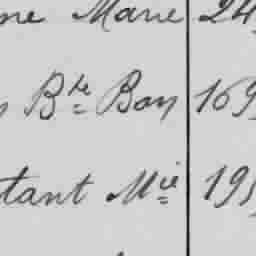 ne Marie 24
Bte Bon 169
tant Mie 195